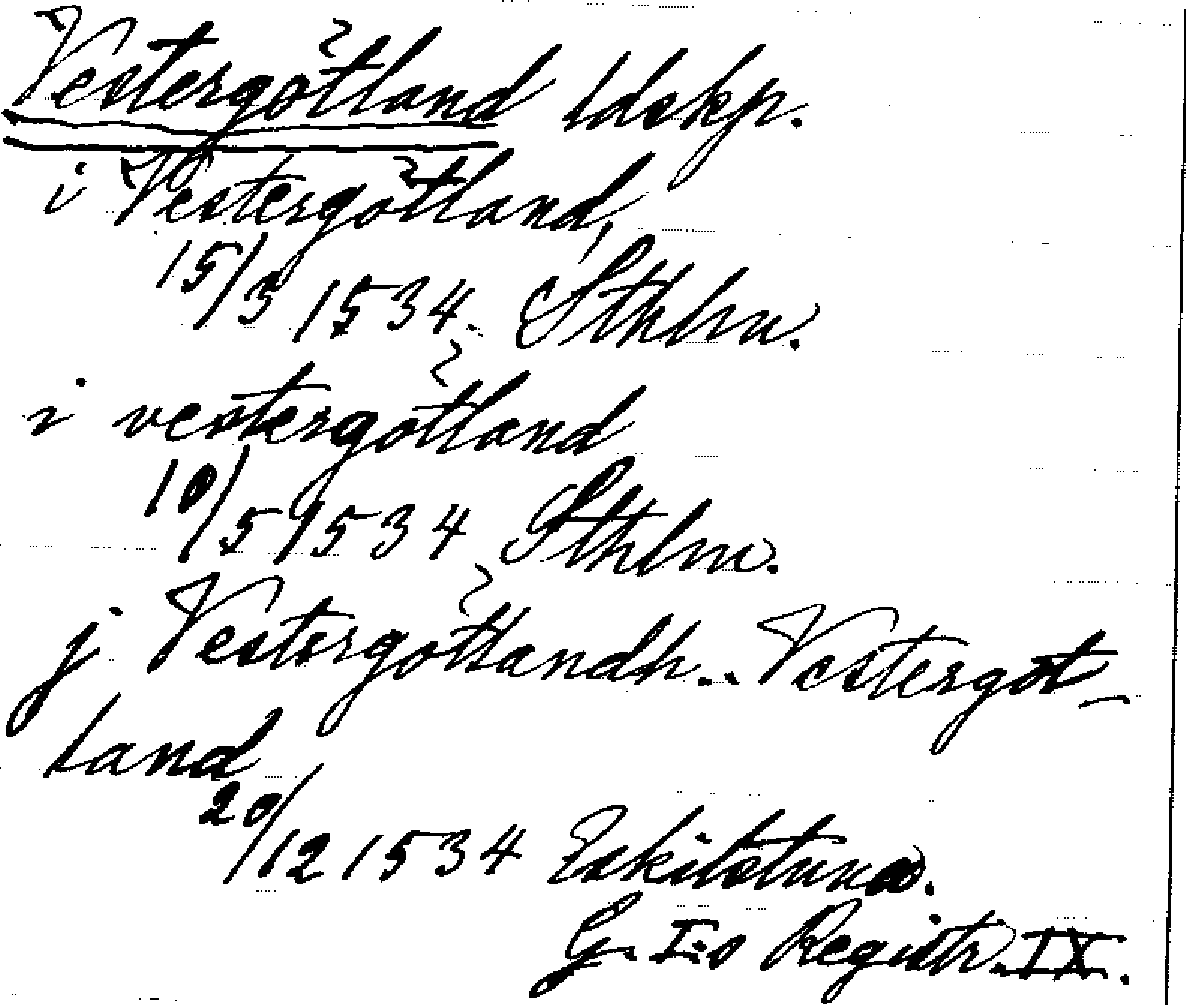 Vestergötland ldskp.
i Vestergötland,
15/3 1534. Sthlm.
i vestergötland
10/5 1534 Sthlm.
j Vestergötlandh.. Vestergöt-
land
20/12 1534 Eskilstuna.
G. I:s Registr. IX.